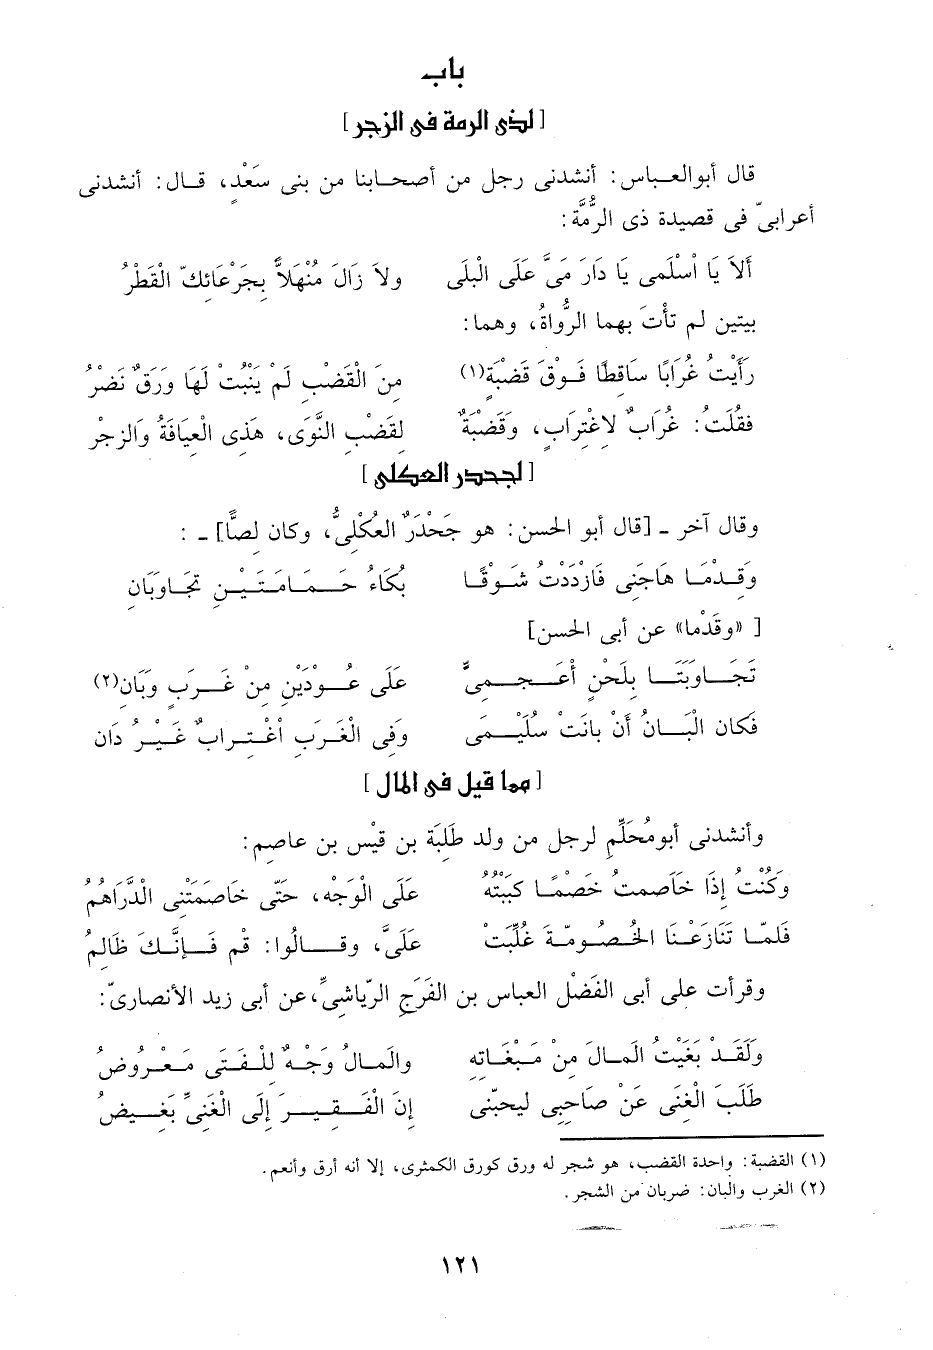 باب
[لذى الرمة فى الزجر]
قال أبوالعباس: أنشدنى رجل من أصحابنا من بنى سَعْدٍ، قال: أنشدنى
أعرابىّ فى قصيدة ذى الرُّمَّة:
ألاَ يَا اْسْلَمى يَا دَارَ مَىَّ عَلَى الْبلَى ولاَ زَالَ مُنْهَلاًّ بِجَرْعَائِكَ الْقَطْرُ
بيتين لم تأتِ بهما الرُّواةُ، وهما:
رَأَيْتُ غُرَابًا سَاقِطًا فَوْقَ قَضْبَةٍ(١) مِنَ الْقَضْبِ لَمْ يَنْبُتْ لَهَا وَرَقٌ نَضْرُ
فقُلَتُ: غُرَابٌ لاغْتِرابٍ، وقَضْبَةٌ لقَضْبِ النَّوَى، هَذِى الْعِيَافَةُ وَالزجْرُ
[لجحدر العكلى]
وقال آخر ـ [قال أبو الحسن: هو جَحْدَرٌ العُكْلِىُّ، وكان لصًّا] ـ :
وَقِدْمًا هَاجَنِى فَازْدَدْتُ شَوْقًا بُكَاءُ حَمَامَتَيْنِ تَجَاوَبَانِ
[ «وقَدْما» عن أبى الحسن]
تَجَاوَبَتَا بِلَحْنٍ أَعْجَمِىٍّ عَلَى عُودَيْنِ مِنْ غَرَبٍ وَبَانِ(٢)
فَكَان الْبَانُ أنْ بانَتْ سُلَيْمَى وَفِى الْغَرَبِ اغْتِرابٌ غَيْرُ دَان
[مما قيل فى المال]
وأنشدنى أبومُحَلِّمٍ لرجل من ولد طَلَبَة بن قيْس بن عاصم:
وَكُنْتُ إذَا خَاصَمتُ خَصْمًا كَبَبْتُهُ عَلَى الْوَجْهِ، حَتَّى خَاصَمَتْنِى الدَّرَاهُمِ
فَلَمَّا تَنَازَعْنَا الخُصُومَةَ غُلِّبَتْ عَلَىَّ، وقَالُوا: قم فَإِنَّكَ ظَالِمُ
وقرأت على أبى الفَضْل العباس بن الفَرَجِ الرّياشىِّ، عن أبى زيد الأنصارىّ:
وَلَقَدْ بَغَيْتُ المالَ مِنْ مَبْغَاتِه والمالُ وَجْهٌ للْفَتَى مَعْرُوضُ
طَلَبَ الْغِنَى عَنْ صَاحِبِى ليحبّنى إنَ الْفَقِيرَ إلَى الْغَنىِّ بَغِيضُ
(١) القضبة: واحدة القضب، هو شجر له ورق كورق الكمثرى، إلا أنه أرق وأنعم.
(٢) الغرب والبان: ضربان من الشجر.
١٢١